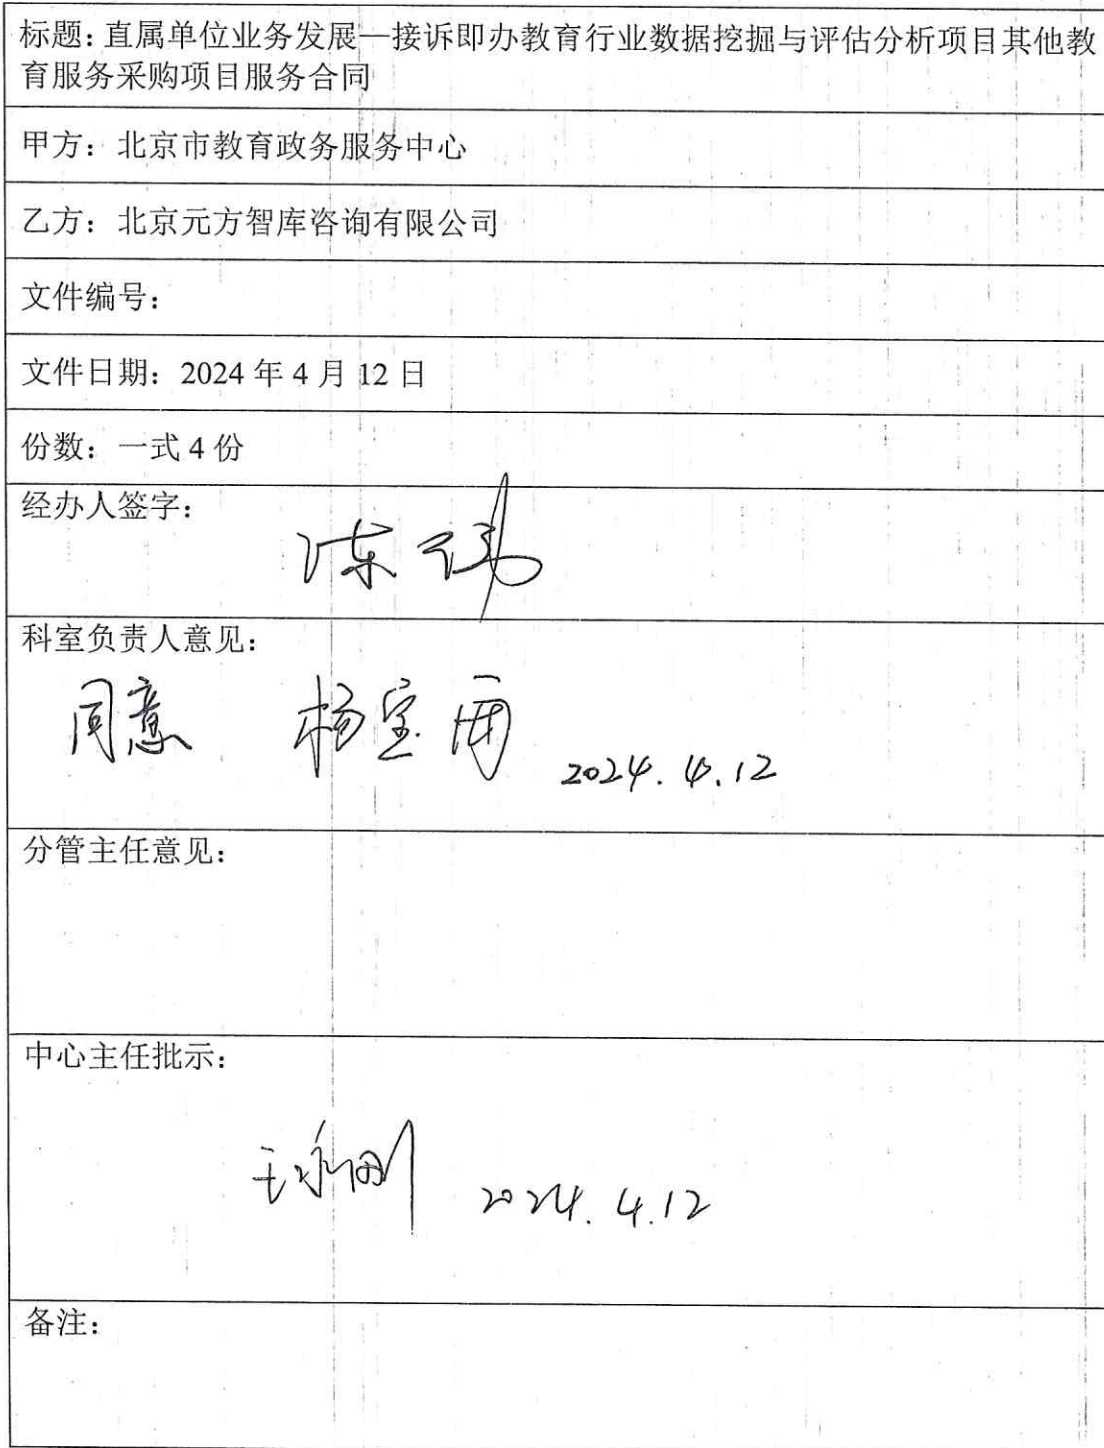 标题：直属单位业务发展—接诉即办教育行业数据挖掘与评估分析项目其他教
育服务采购项目服务合同
甲方：北京市教育政务服务中心
乙方：北京元方智库咨询有限公司
文件编号：
文件日期：2024 年 4 月 12 日
份数：一式 4 份
经办人签字：
陈
科室负责人意见：
同意 杨宝 2024.4.12
分管主任意见：
中心主任批示：
王永刚 2024.4.12
备注：